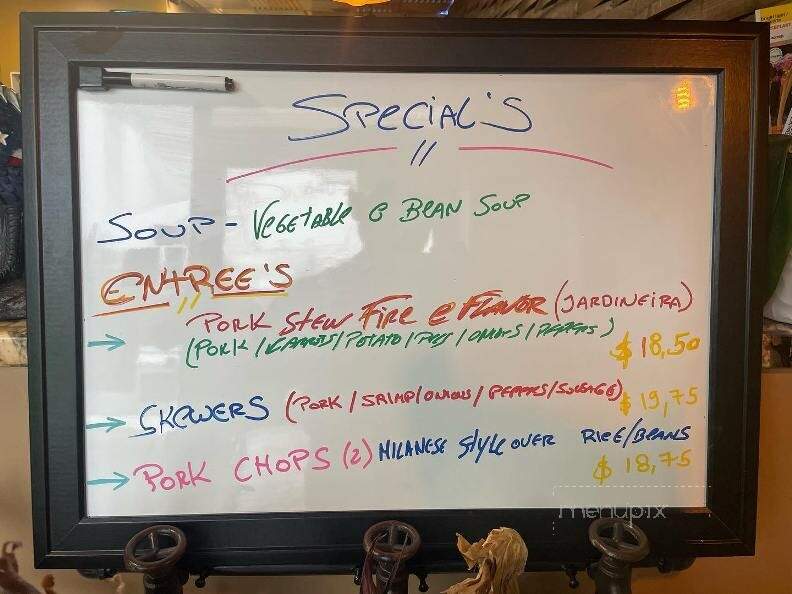 SPECIAL'S
SOUP - VEGETABLE e BEAN SOUP
ENTREE'S
PORK STEW FIRE e FLAVOR (JARDINEIRA)
(PORK / CARROTS / POTATO / PEAS / ONIONS / PEPPERS) $ 18,50
SKEWERS (PORK / SRIMP / ONIONS / PEPPERS / SAUSAGE) $ 19,75
PORK CHOPS (2) MILANESE STYLE OVER RICE/BEANS
$ 18,75
menupix